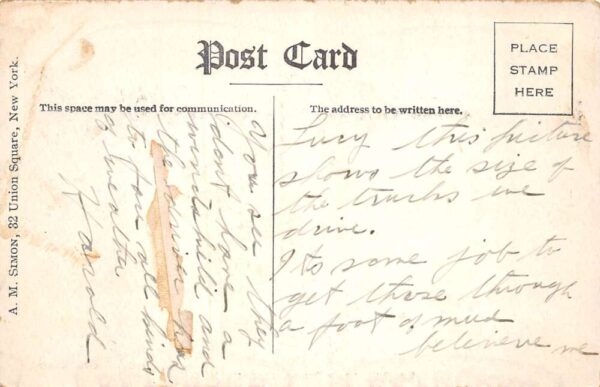 Post Card
PLACE
STAMP
HERE
This space may be used for communication.
The address to be written here.
A. M. SIMON, 32 Union Square, New York.
Lucy this picture
shows the size of
the trucks we
drive.
Its some job to
get those through
a foot of mud
believe me
You see they
dont have a
windshild and
the driver has
to all kinds
of weather
Harold